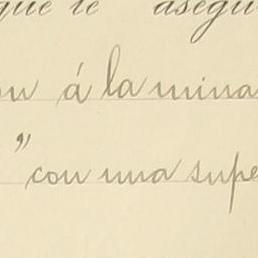 que le asegu
á la mina
" con una supe